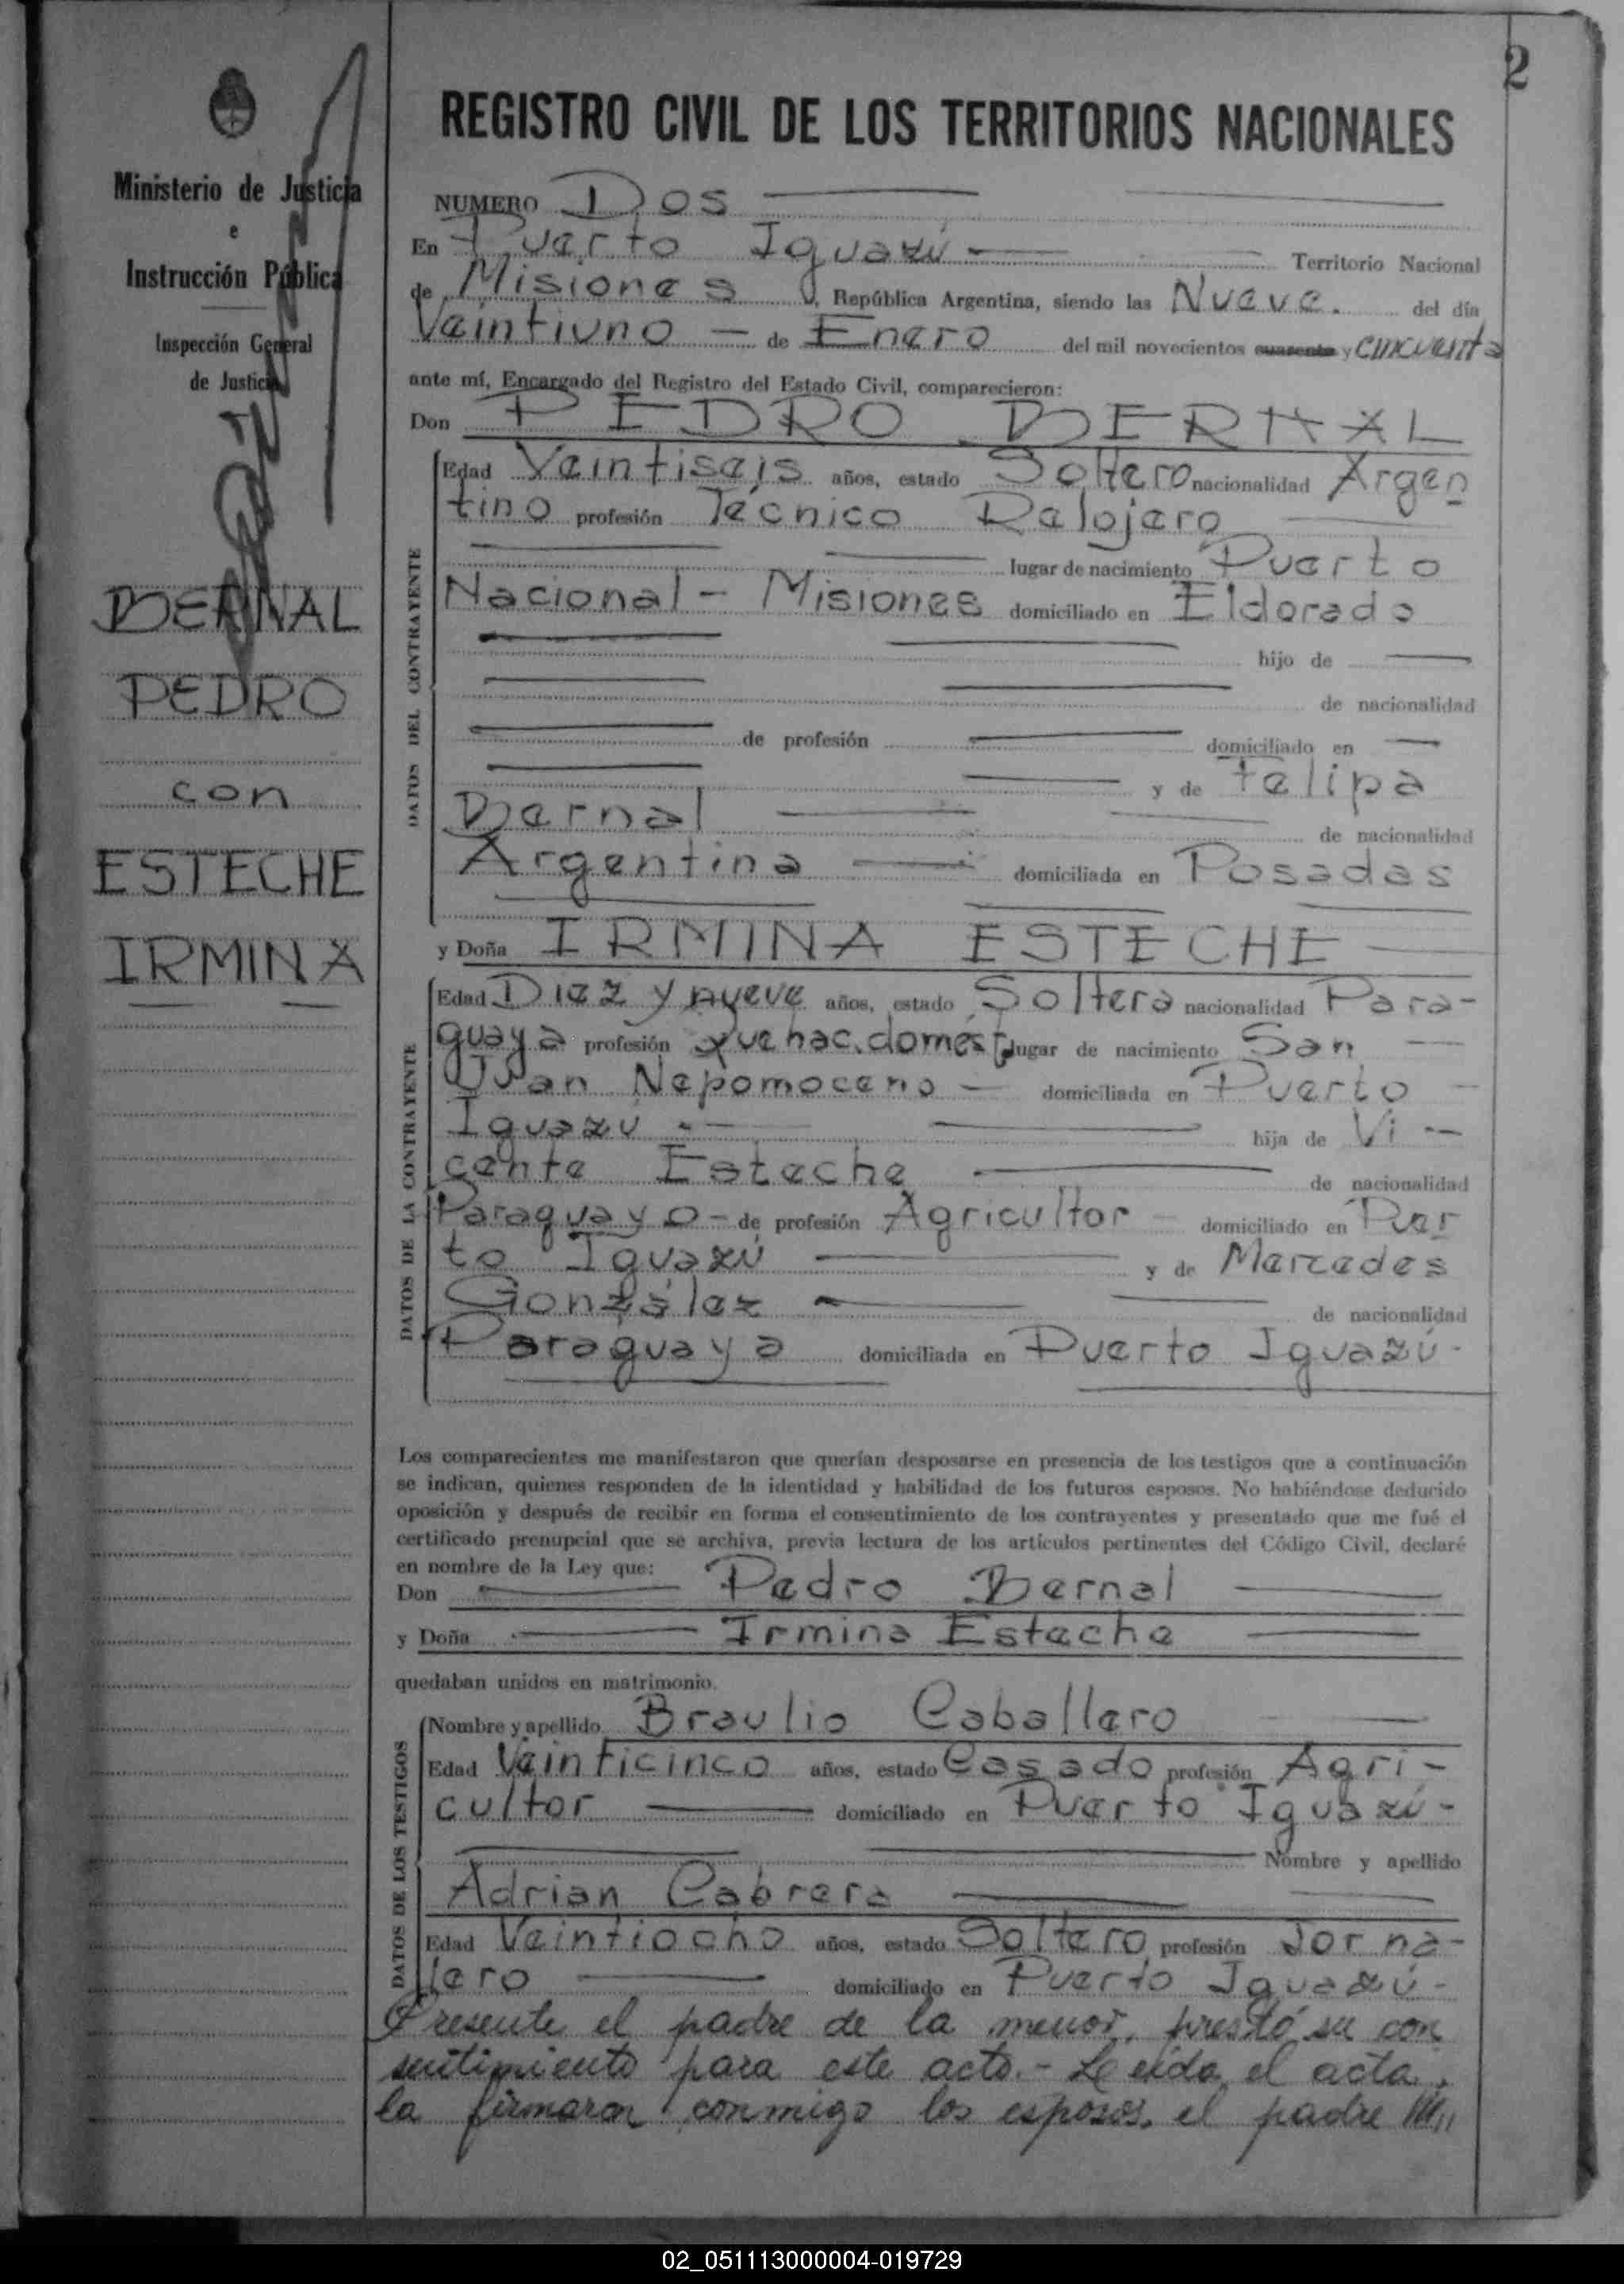 2
Ministerio de Justicia
e
Instrucción Pública
Inspección General
de Justicia
BERNAL
PEDRO
con
ESTECHE
IRMINA
REGISTRO CIVIL DE LOS TERRITORIOS NACIONALES
NUMERO Dos
En Puerto Iguazú Territorio Nacional
de Misiones, República Argentina, siendo las Nueve. del día
Veintiuno - de Enero del mil novecientos cuarenta y cincuenta
ante mí, Encargado del Registro del Estado Civil, comparecieron:
Don PEDRO BERNAL
DATOS DEL CONTRAYENTE
Edad Veintiseis años, estado Soltero nacionalidad Argen
tino profesión Técnico Relojero
lugar de nacimiento Puerto
Nacional - Misiones domiciliado en Eldorado
hijo de
de nacionalidad
de profesión domiciliado en
y de Felipa
Bernal de nacionalidad
Argentina domiciliada en Posadas
y Doña IRMINA ESTECHE
DATOS DE LA CONTRAYENTE
Edad Diez y nueve años, estado Soltera nacionalidad Para-
guaya profesión Quehac. domést. lugar de nacimiento San
Juan Nepomoceno - domiciliada en Puerto -
Iguazú - hija de Vi -
cente Esteche de nacionalidad
Paraguayo - de profesión Agricultor - domiciliado en Puer
to Iguazú y de Mercedes
González de nacionalidad
Paraguaya domiciliada en Puerto Iguazú -
Los comparecientes me manifestaron que querían desposarse en presencia de los testigos que a continuación
se indican, quienes responden de la identidad y habilidad de los futuros esposos. No habiéndose deducido
oposición y después de recibir en forma el consentimiento de los contrayentes y presentado que me fué el
certificado prenupcial que se archiva, previa lectura de los artículos pertinentes del Código Civil, declaré
en nombre de la Ley que:
Don Pedro Bernal
y Doña Irmina Esteche
quedaban unidos en matrimonio.
DATOS DE LOS TESTIGOS
Nombre y apellido Braulio Caballero
Edad Veinticinco años, estado Casado profesión Agri-
cultor domiciliado en Puerto Iguazú -
Nombre y apellido
Adrian Cabrera
Edad Veintiocho años, estado Soltero profesión Jorna-
lero domiciliado en Puerto Iguazú -
Presente el padre de la menor, prestó su con
sentimiento para este acto. - Leída el acta,
la firmaron conmigo los esposos, el padre
02_051113000004-019729